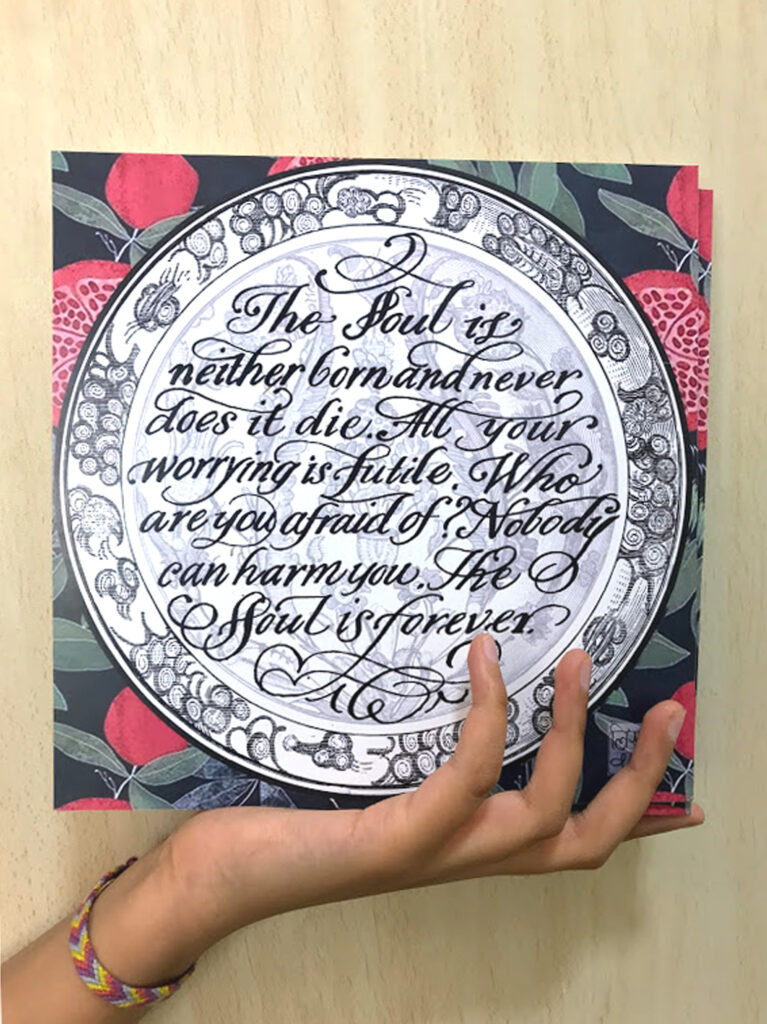 The Soul is
neither born and never
does it die. All your
worrying is futile. Who
are you afraid of? Nobody
can harm you. The
Soul is forever.